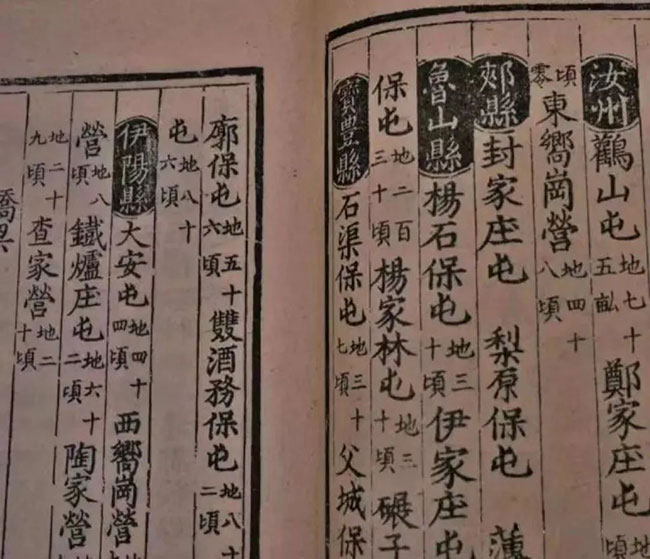 汝州鸛山屯地七十五畝鄭家庄屯
頃零東嚮崗營地四十八頃
郟縣封家庄屯梨原保屯薄
魯山縣楊石保屯地三十頃伊家庄屯
保屯地二百三十頃楊家林屯地三十頃碾子
寶豐縣石渠保屯地三十七頃父城保
廓保屯地五十六頃雙酒務保屯地八十二頃
屯地八十六頃
伊陽縣大安屯地四十四頃西嚮崗營
營地八頃鐵爐庄屯地六十二頃陶家營
地二十九頃查家營地二十頃